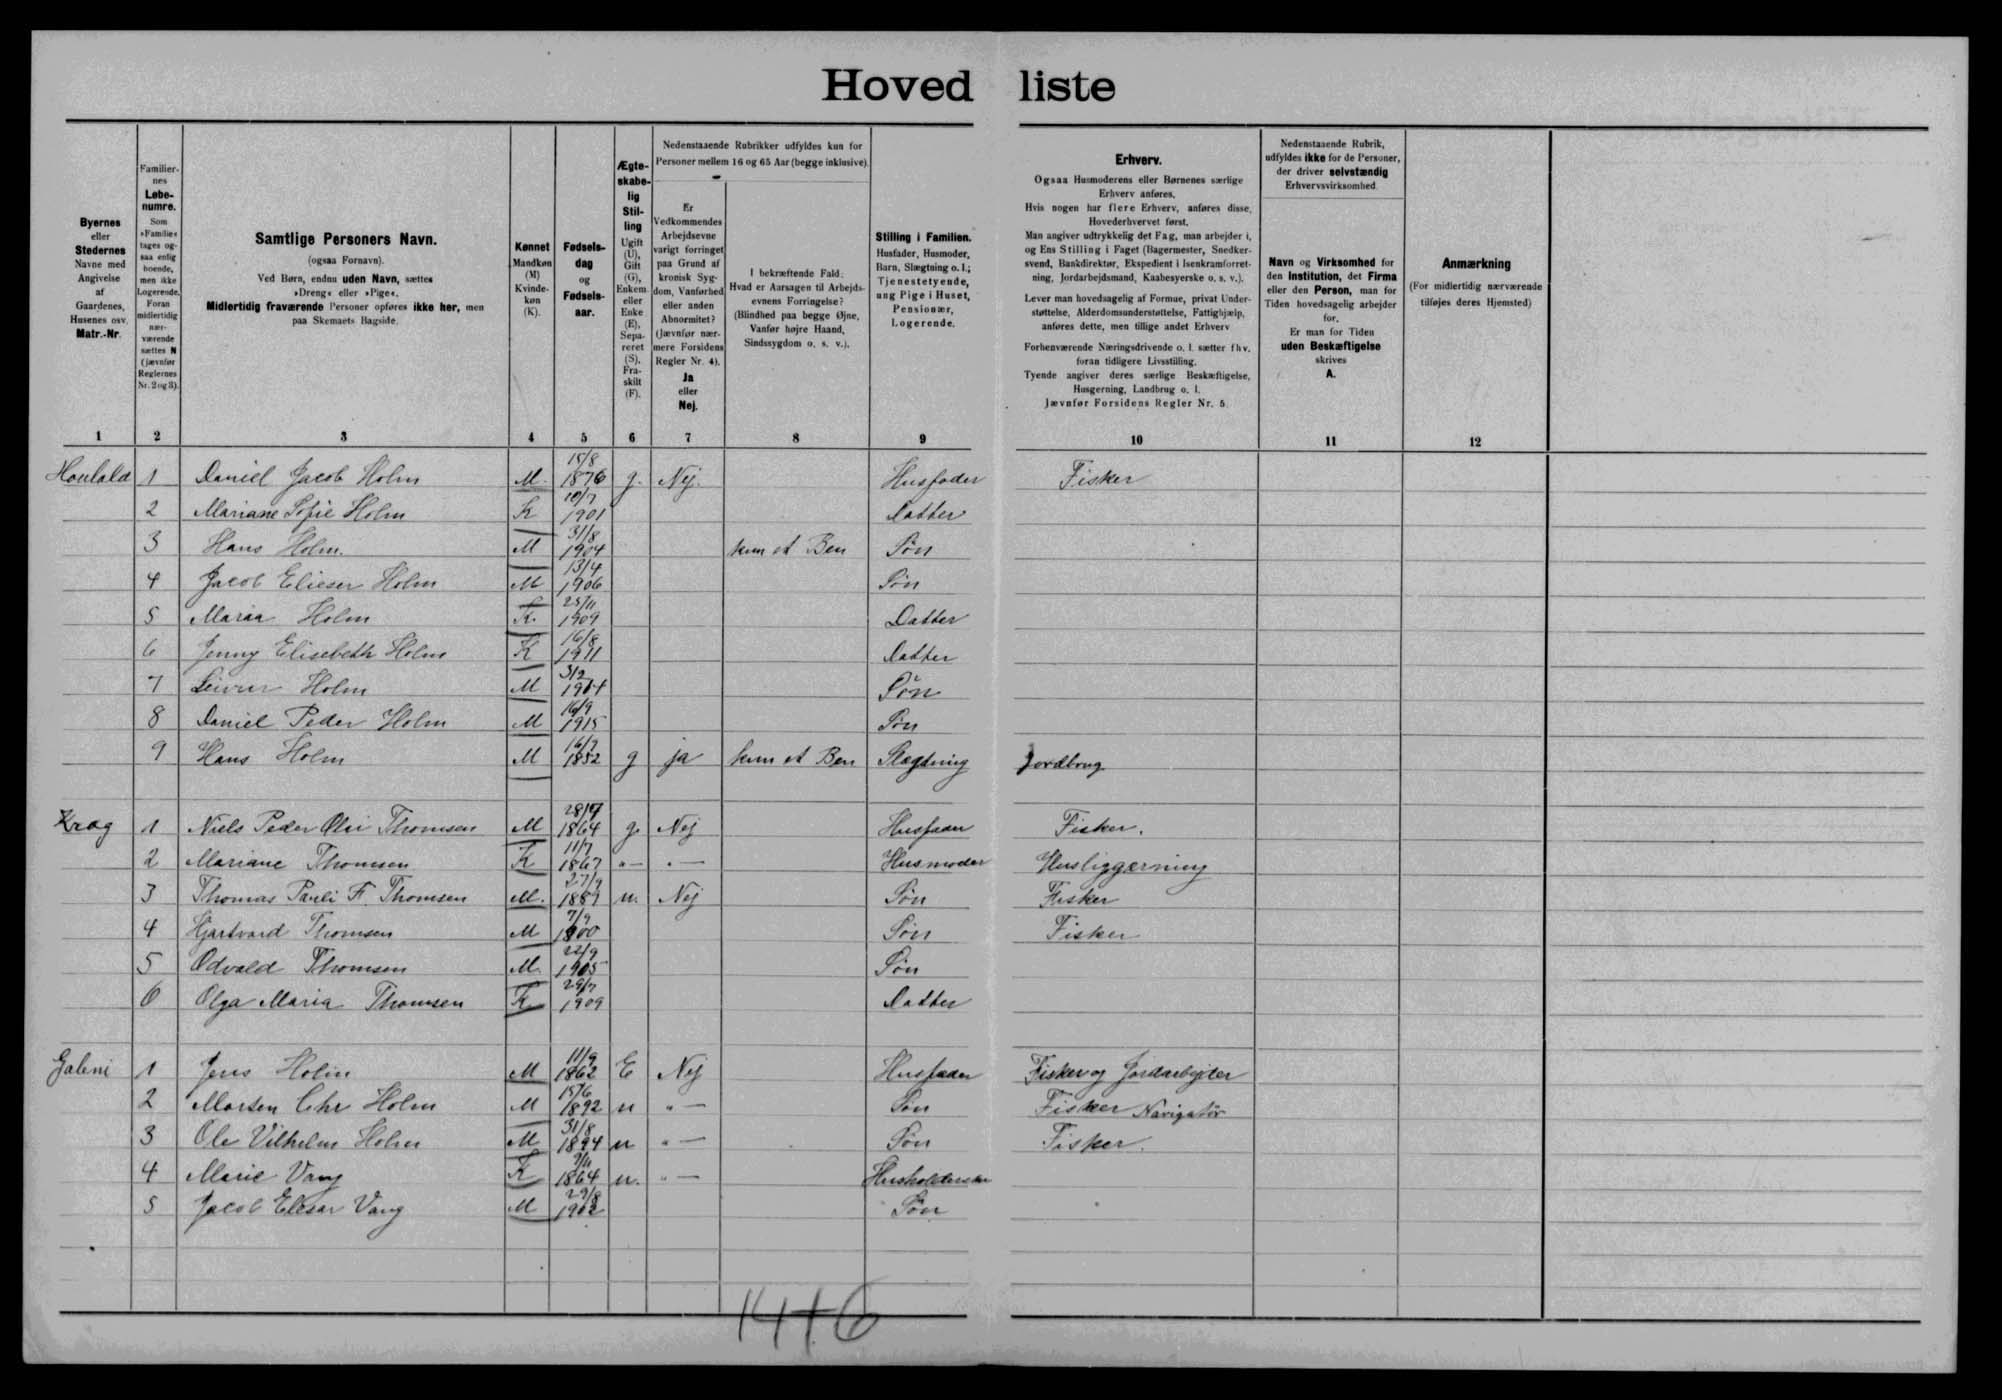 Hovedliste
Byernes eller Stedernes Navne med Angivelse af Gaardenes, Husenes osv. Matr.-Nr.
Familiernes Løbenumre. Som »Familie« tages ogsaa enlig boende, men ikke Logerende. Foran midlertidig nærværende sættes N (jævnfør Reglernes Nr. 2 og 3).
Samtlige Personers Navn. (ogsaa Fornavn). Ved Børn, endnu uden Navn, sættes »Dreng« eller »Pige«. Midlertidig fraværende Personer opføres ikke her, men paa Skemaets Bagside.
Kønnet Mandkøn (M) Kvindekøn (K).
Fødselsdag og Fødselsaar.
Ægteskabelig Stilling Ugift (U), Gift (G), Enkem. eller Enke (E), Separeret (S), Fraskilt (F).
Nedenstaaende Rubrikker udfyldes kun for Personer mellem 16 og 65 Aar (begge inklusive).
Er Vedkommendes Arbejdsevne varigt forringet paa Grund af kronisk Sygdom, Vanførhed eller anden Abnormitet? (Jævnfør nærmere Forsidens Regler Nr. 4). Ja eller Nej.
I bekræftende Fald: Hvad er Aarsagen til Arbejdsevnens Forringelse? (Blindhed paa begge Øjne, Vanfør højre Haand, Sindssygdom o. s. v.).
Stilling i Familien. Husfader, Husmoder, Barn, Slægtning o. l.; Tjenestetyende, ung Pige i Huset, Pensionær, Logerende.
Erhverv.
Ogsaa Husmoderens eller Børnenes særlige Erhverv anføres.
Hvis nogen har flere Erhverv, anføres disse, Hovederhvervet først.
Man angiver udtrykkelig det Fag, man arbejder i, og Ens Stilling i Faget (Bagermester, Snedkersvend, Bankdirektør, Ekspedient i Isenkramforretning, Jordarbejdsmand, Kaabesyerske o. s. v.).
Lever man hovedsagelig af Formue, privat Understøttelse, Alderdomsunderstøttelse, Fattighjælp, anføres dette, men tillige andet Erhverv
Forhenværende Næringsdrivende o. l. sætter fhv. foran tidligere Livsstilling.
Tyende angiver deres særlige Beskæftigelse, Husgerning, Landbrug o. l.
Jævnfør Forsidens Regler Nr. 5
Nedenstaaende Rubrik, udfyldes ikke for de Personer, der driver selvstændig Erhvervsvirksomhed.
Navn og Virksomhed for den Institution, det Firma eller den Person, man for Tiden hovedsagelig arbejder for. Er man for Tiden uden Beskæftigelse skrives A.
Anmærkning (For midlertidig nærværende tilføjes deres Hjemsted)
1 2 3 4 5 6 7 8 9 10 11 12
1 Daniel Jacob Holm M. 15/8 1876 g. Nej. Husfader Fisker
2 Mariane Sofie Holm K 10/7 1901 Datter
3 Hans Holm. M 31/8 1904 kun et Ben Søn
4 Jacob Elieser Holm M 13/4 1906 Søn
5 Maria Holm K. 25/11 1909 Datter
6 Jenny Elisebeth Holm K 16/8 1911 Datter
7 Holm M 3/2 Søn
8 Daniel Peder Holm M 16/9 1915 Søn
9 Hans Holm M 16/7 1852 g ja kun et Ben Slægtning Jordbrug
Krog 1 Niels Peder Thomsen M 1864 g. Nej Husfader Fisker.
2 Mariane Thomsen K 11/7 1867 "— "— Husmoder Husliggærning
3 Thomas Pauli F. Thomsen M. 27/9 1889 u. Nej Søn Fisker
4 Hjartvard Thomsen M 7/9 1900 Søn Fisker
5 Odvald Thomsen M. 22/9 1905 Søn
6 Olga Maria Thomsen K 29/7 1909 Datter
1 Jens Holm M 11/9 1862 E Nej Husfader Fisker og Jordarbejder
2 Morten Chr Holm M 15/6 1892 u "— Søn Fisker Navigatør
3 Ole Vilhelm Holm M 31/8 1894 u "— Søn Fisker.
4 Marie Vang K 1864 u. "— Husholderske
5 Jacob Elesar Vang M 29/8 1902 Søn
14+6